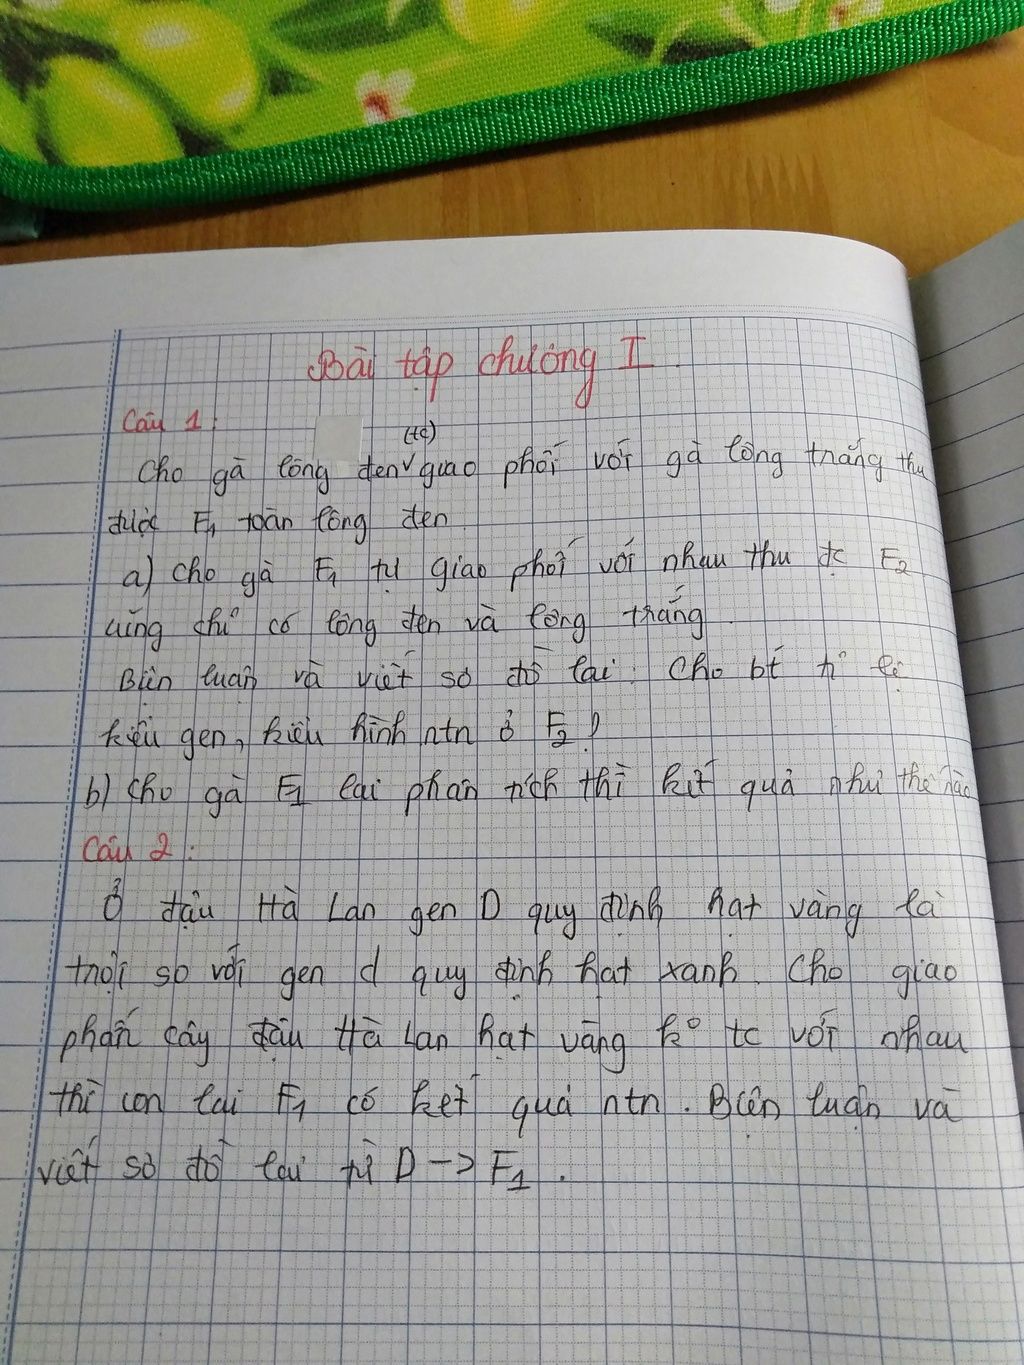 Bài tập chương I.
Câu 1:
(tc)
Cho gà lông đen˅giao phối với gà lông trắng thu
được F1 toàn lông đen.
a) Cho gà F1 tự giao phối với nhau thu đc F2
cũng chỉ có lông đen và lông trắng.
Biện luận và viết sơ đồ lai. Cho bt tỉ lệ
kiểu gen, kiểu hình ntn ở F2?
b) Cho gà F1 lai phân tích thì kết quả như thế nào
Câu 2:
Ở đậu Hà Lan gen D quy định hạt vàng là
trội so với gen d quy định hạt xanh. Cho giao
phấn cây đậu Hà Lan hạt vàng ko tc với nhau
thì con lai F1 có kết quả ntn. Biện luận và
viết sơ đồ lai từ D -> F1.